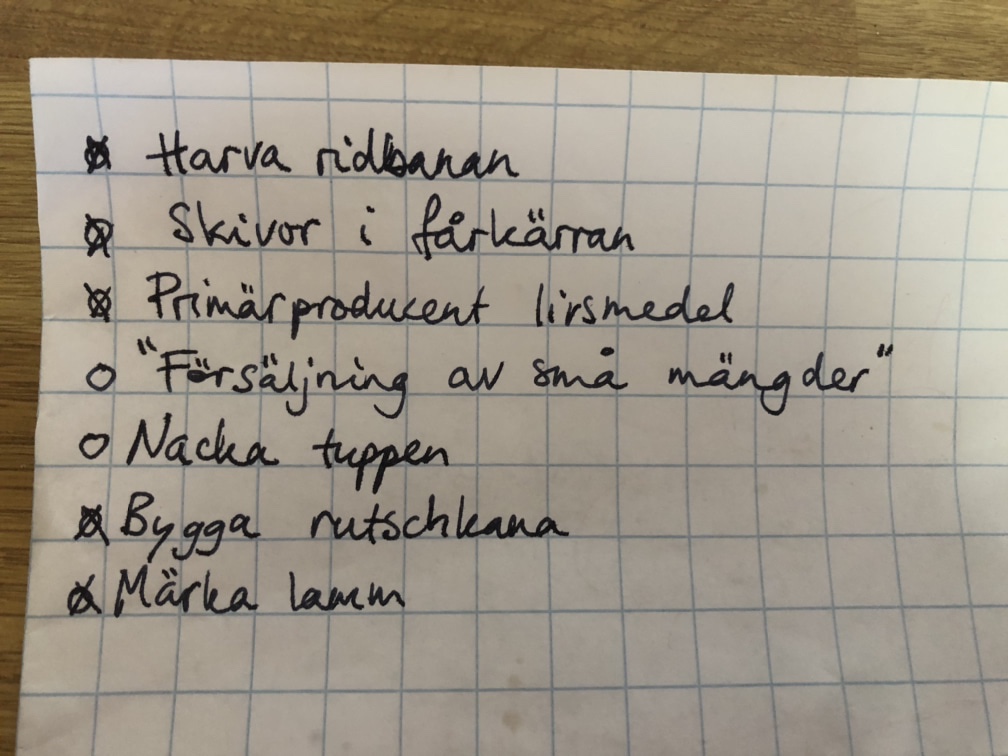 Harva ridbanan
Skivor i fårkärran
Primärproducent livsmedel
"Försäljning av små mängder"
Nacka tuppen
Bygga rutschkana
Märka lamm